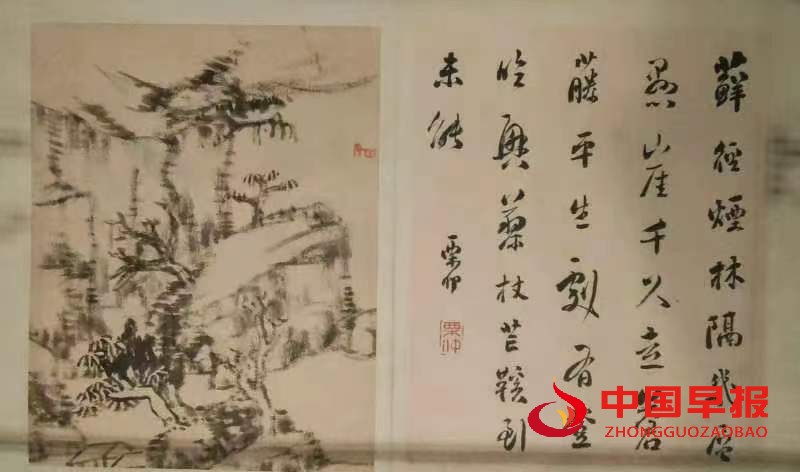 蘚徑煙林隔幾層
懸崖千尺立蒼
藤平生劇有登
臨興藜杖芒鞵到
未能
栗仲
栗仲
中国早报
ZHONGGUOZAOBAO